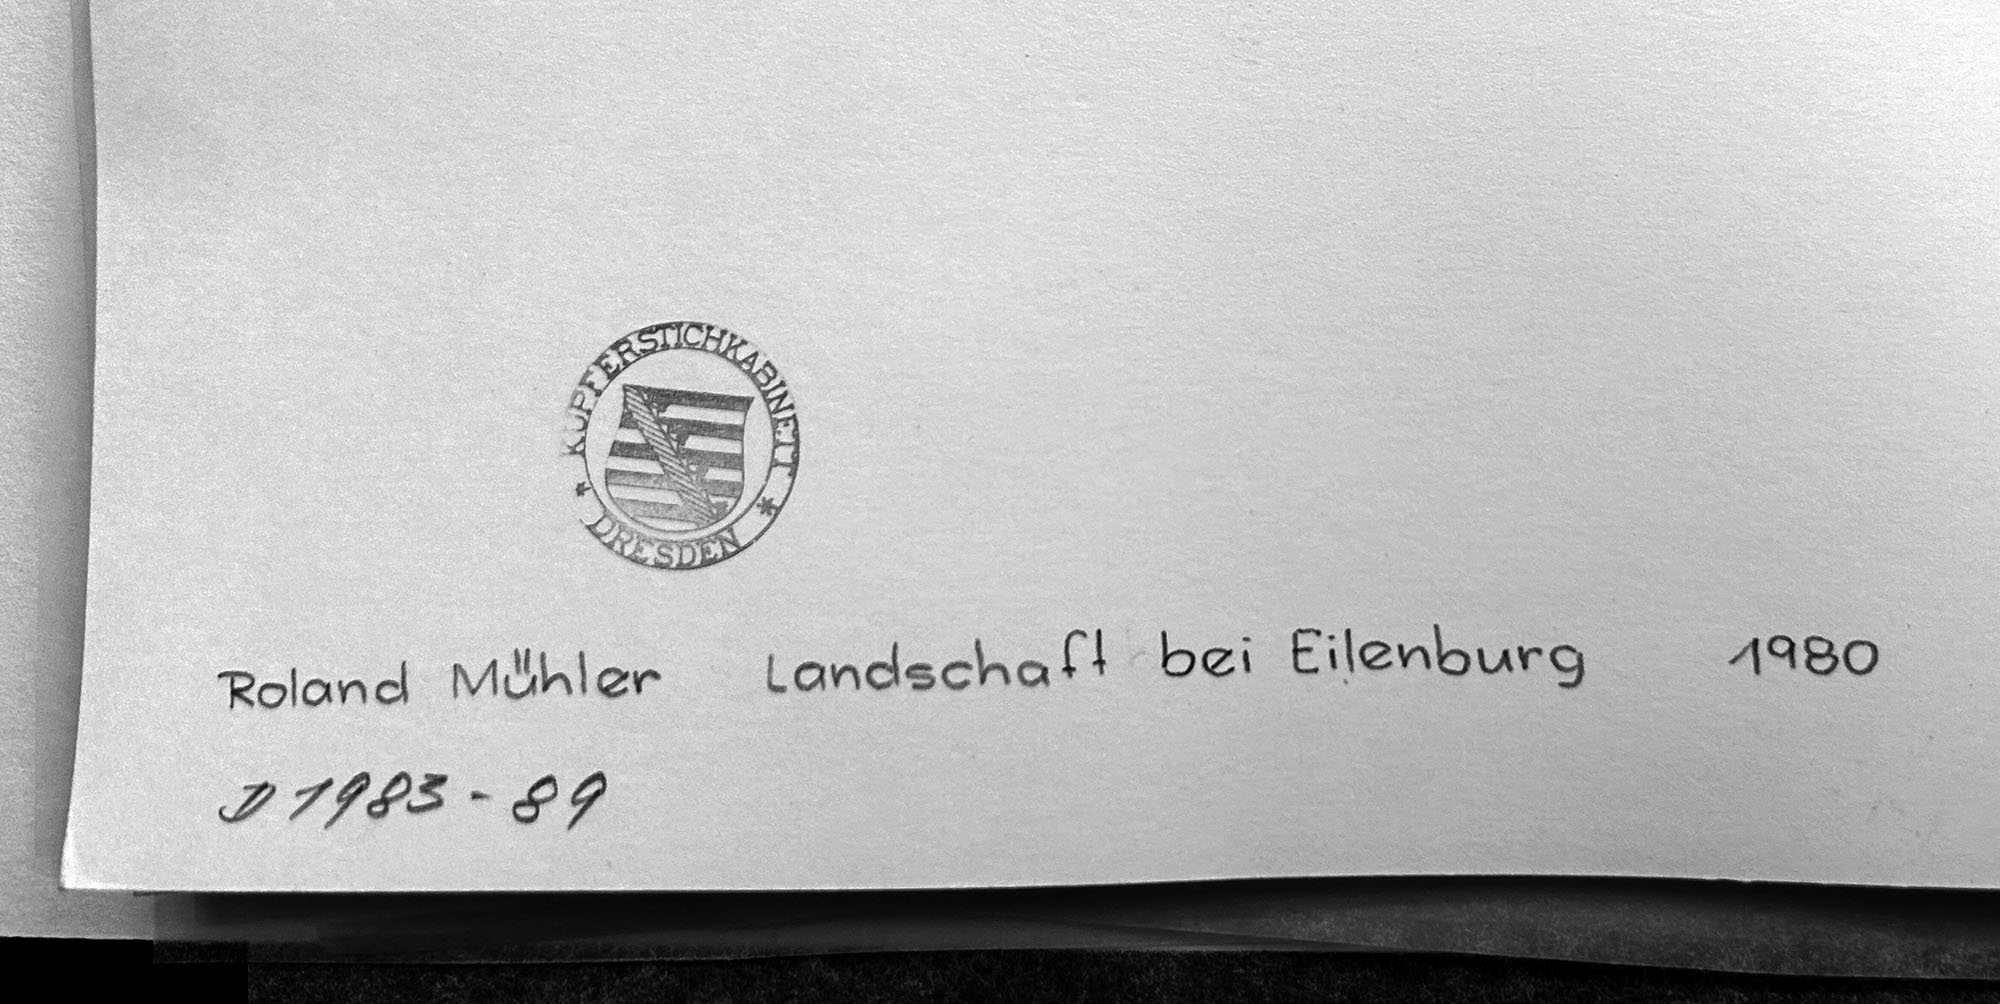 KUPFERSTICHKABINETT
* DRESDEN *
Roland Mühler Landschaft bei Eilenburg 1980
D 1983-89